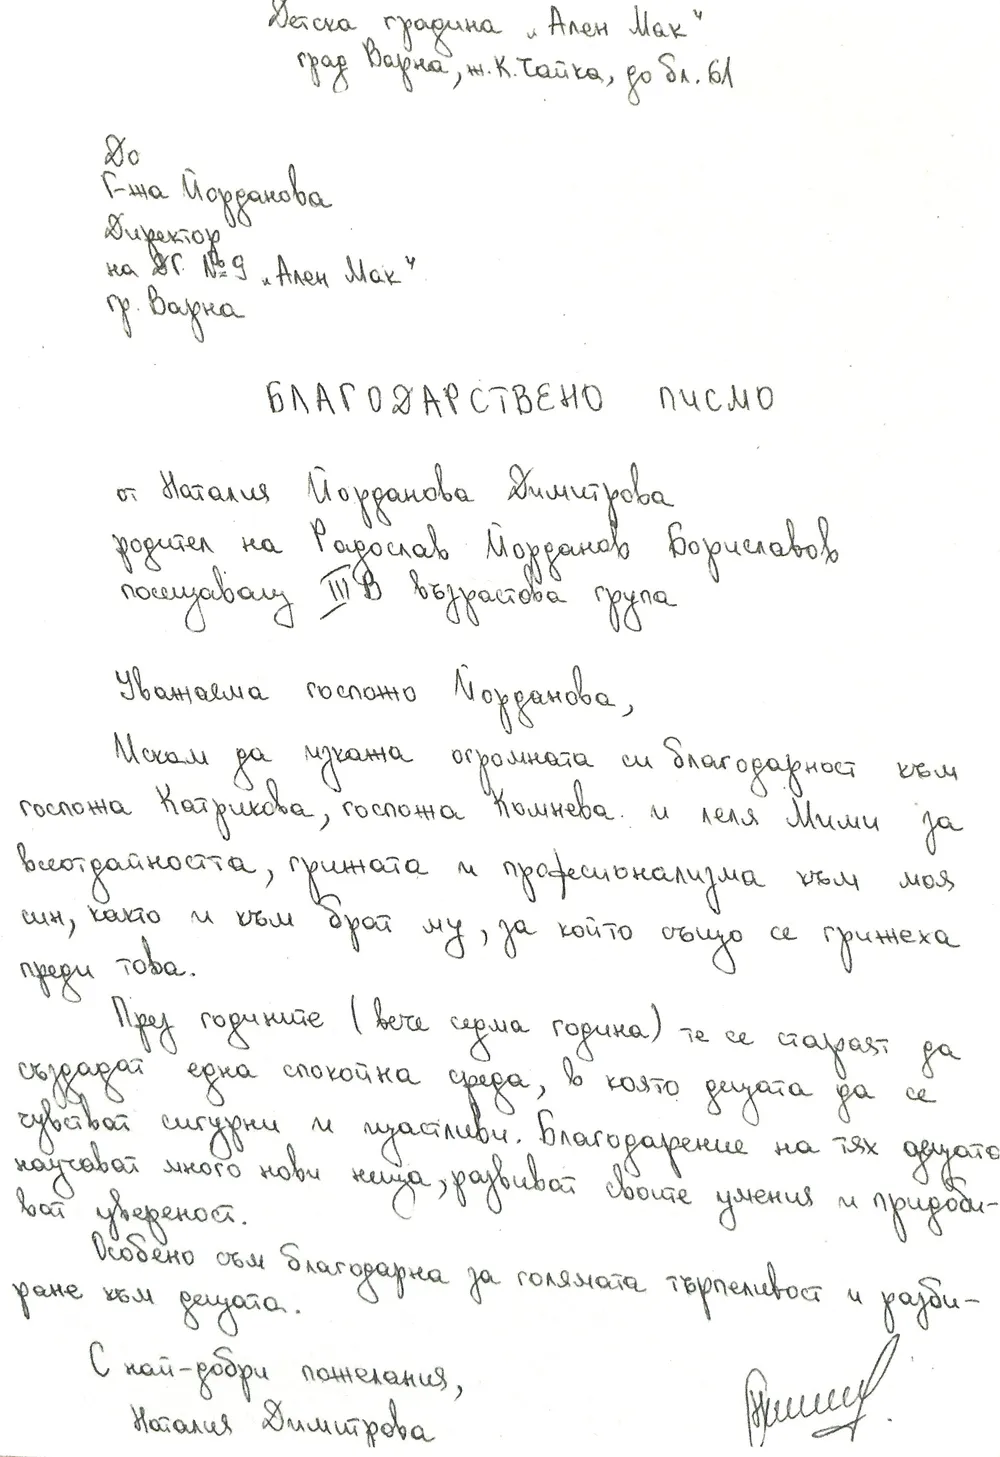 Детска градина „Ален Мак“
град Варна, ж.к. Чайка, до бл. 61
До
Г-жа Йорданова
Директор
на ДГ №9 „Ален Мак“
гр. Варна
БЛАГОДАРСТВЕНО ПИСМО
от Наталия Йорданова Димитрова
родител на Радослав Йорданов Бориславов
посещаващ III В възрастова група
Уважаема госпожо Йорданова,
Искам да изкажа огромната си благодарност към
госпожа Катрикова, госпожа Комнева и леля Мими за
всеотдайността, грижата и професионализма към моя
син, както и към брат му, за който също се грижеха
преди това.
През годините (вече седма година) те се стараят да
създадат една спокойна среда, в която децата да се
чувстват сигурни и щастливи. Благодарение на тях децата
научават много нови неща, развиват своите умения и придоби-
ват увереност.
Особено съм благодарна за голямата търпеливост и разби-
ране към децата.
С най-добри пожелания,
Наталия Димитрова